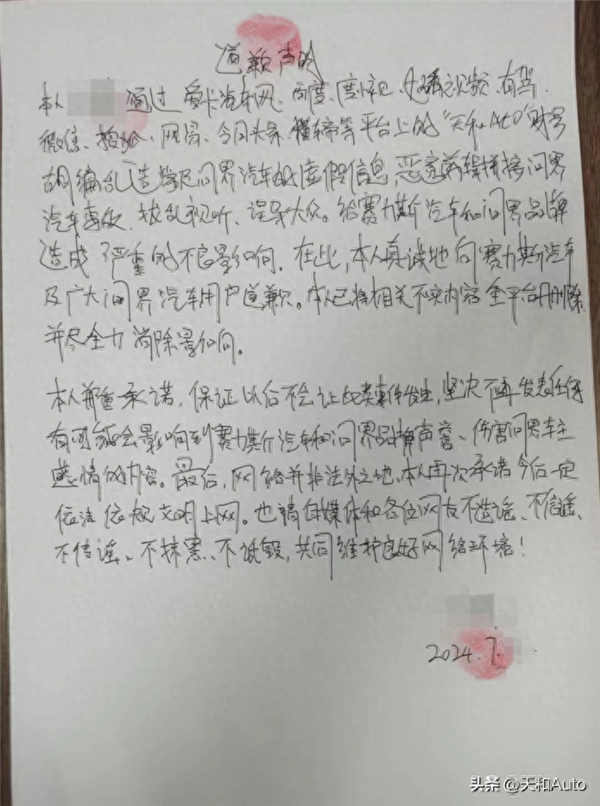 道歉声明
本人 通过爱卡汽车网、百度、度小视、好看视频、有驾、
微信、搜狐、网易、今日头条、懂车帝等平台上的"天和Auto"账号
胡编乱造攀尼问界汽车的虚假信息,恶意剪辑拼接问界
汽车事故,扰乱视听、误导大众。给赛力斯汽车和问界品牌
造成了严重的不良影响。在此,本人真诚地向赛力斯汽车
及广大问界汽车用户道歉。本人已将相关不实内容全平台删除
并尽全力消除影响。
本人郑重承诺,保证以后不会让此类事件发生,坚决不再发表任何
有可能会影响到赛力斯汽车和问界品牌声誉、伤害问界车主
感情的内容。最后,网络并非法外之地,本人再次承诺今后一定
依法依规文明上网。也请自媒体和各位网友不造谣、不信谣、
不传谣、不抹黑、不诋毁,共同维护良好网络环境!
2024.7.
头条 @天和Auto